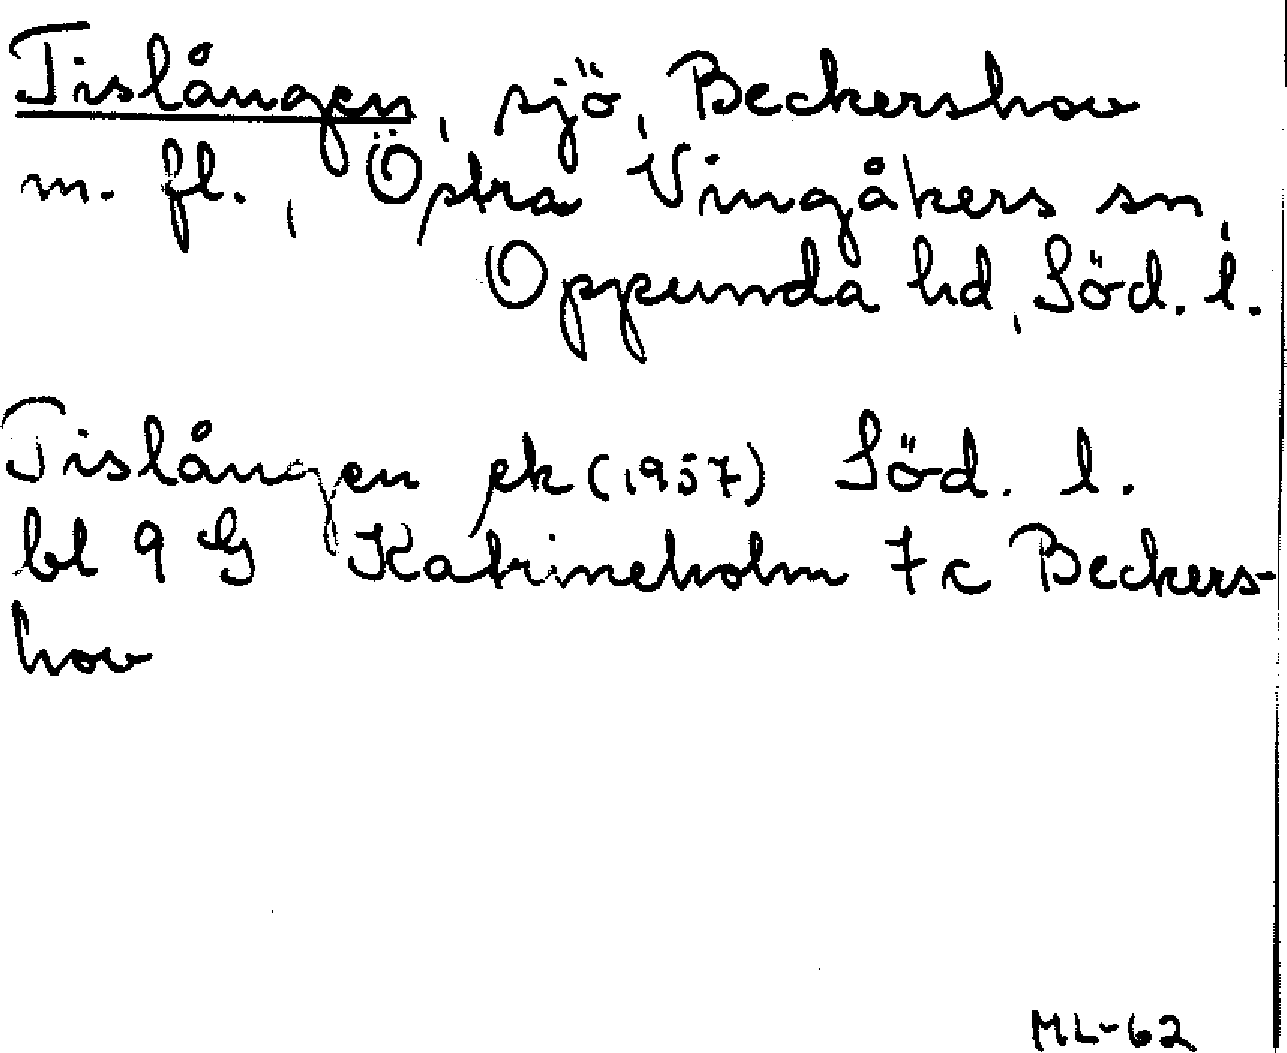 Tislången, sjö, Beckershov
m. fl., Östra Vingåkers sn,
Oppunda hd, Söd. l.
Tislången ek (1957) Söd. l.
bl 9 G Katrineholm 7c Beckers-
hov
ML-62